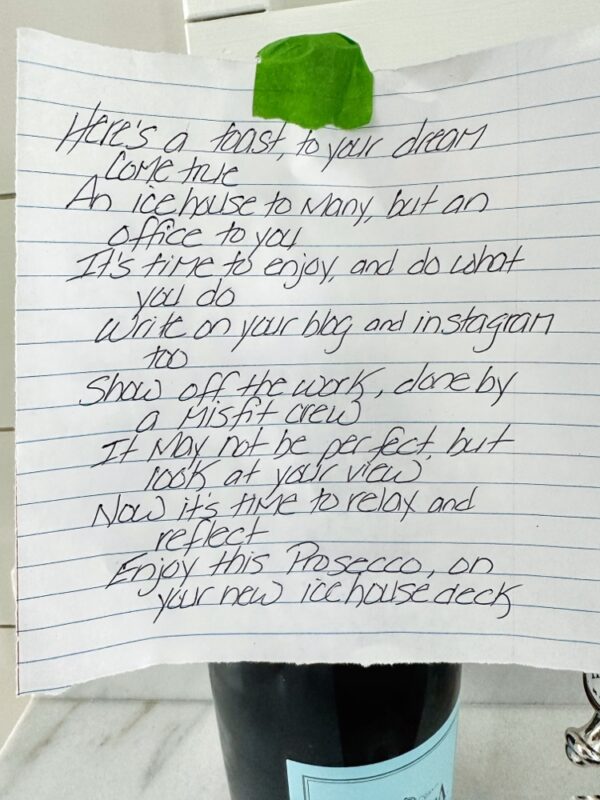 Here's a toast, to your dream
come true
An ice house to Many, but an
office to you
It's time to enjoy, and do what
you do
Write on your blog and instagram
too
Show off the work, done by
a Misfit crew
It May not be perfect, but
look at your view
Now it's time to relax and
reflect
Enjoy this Prosecco, on
your new ice house deck